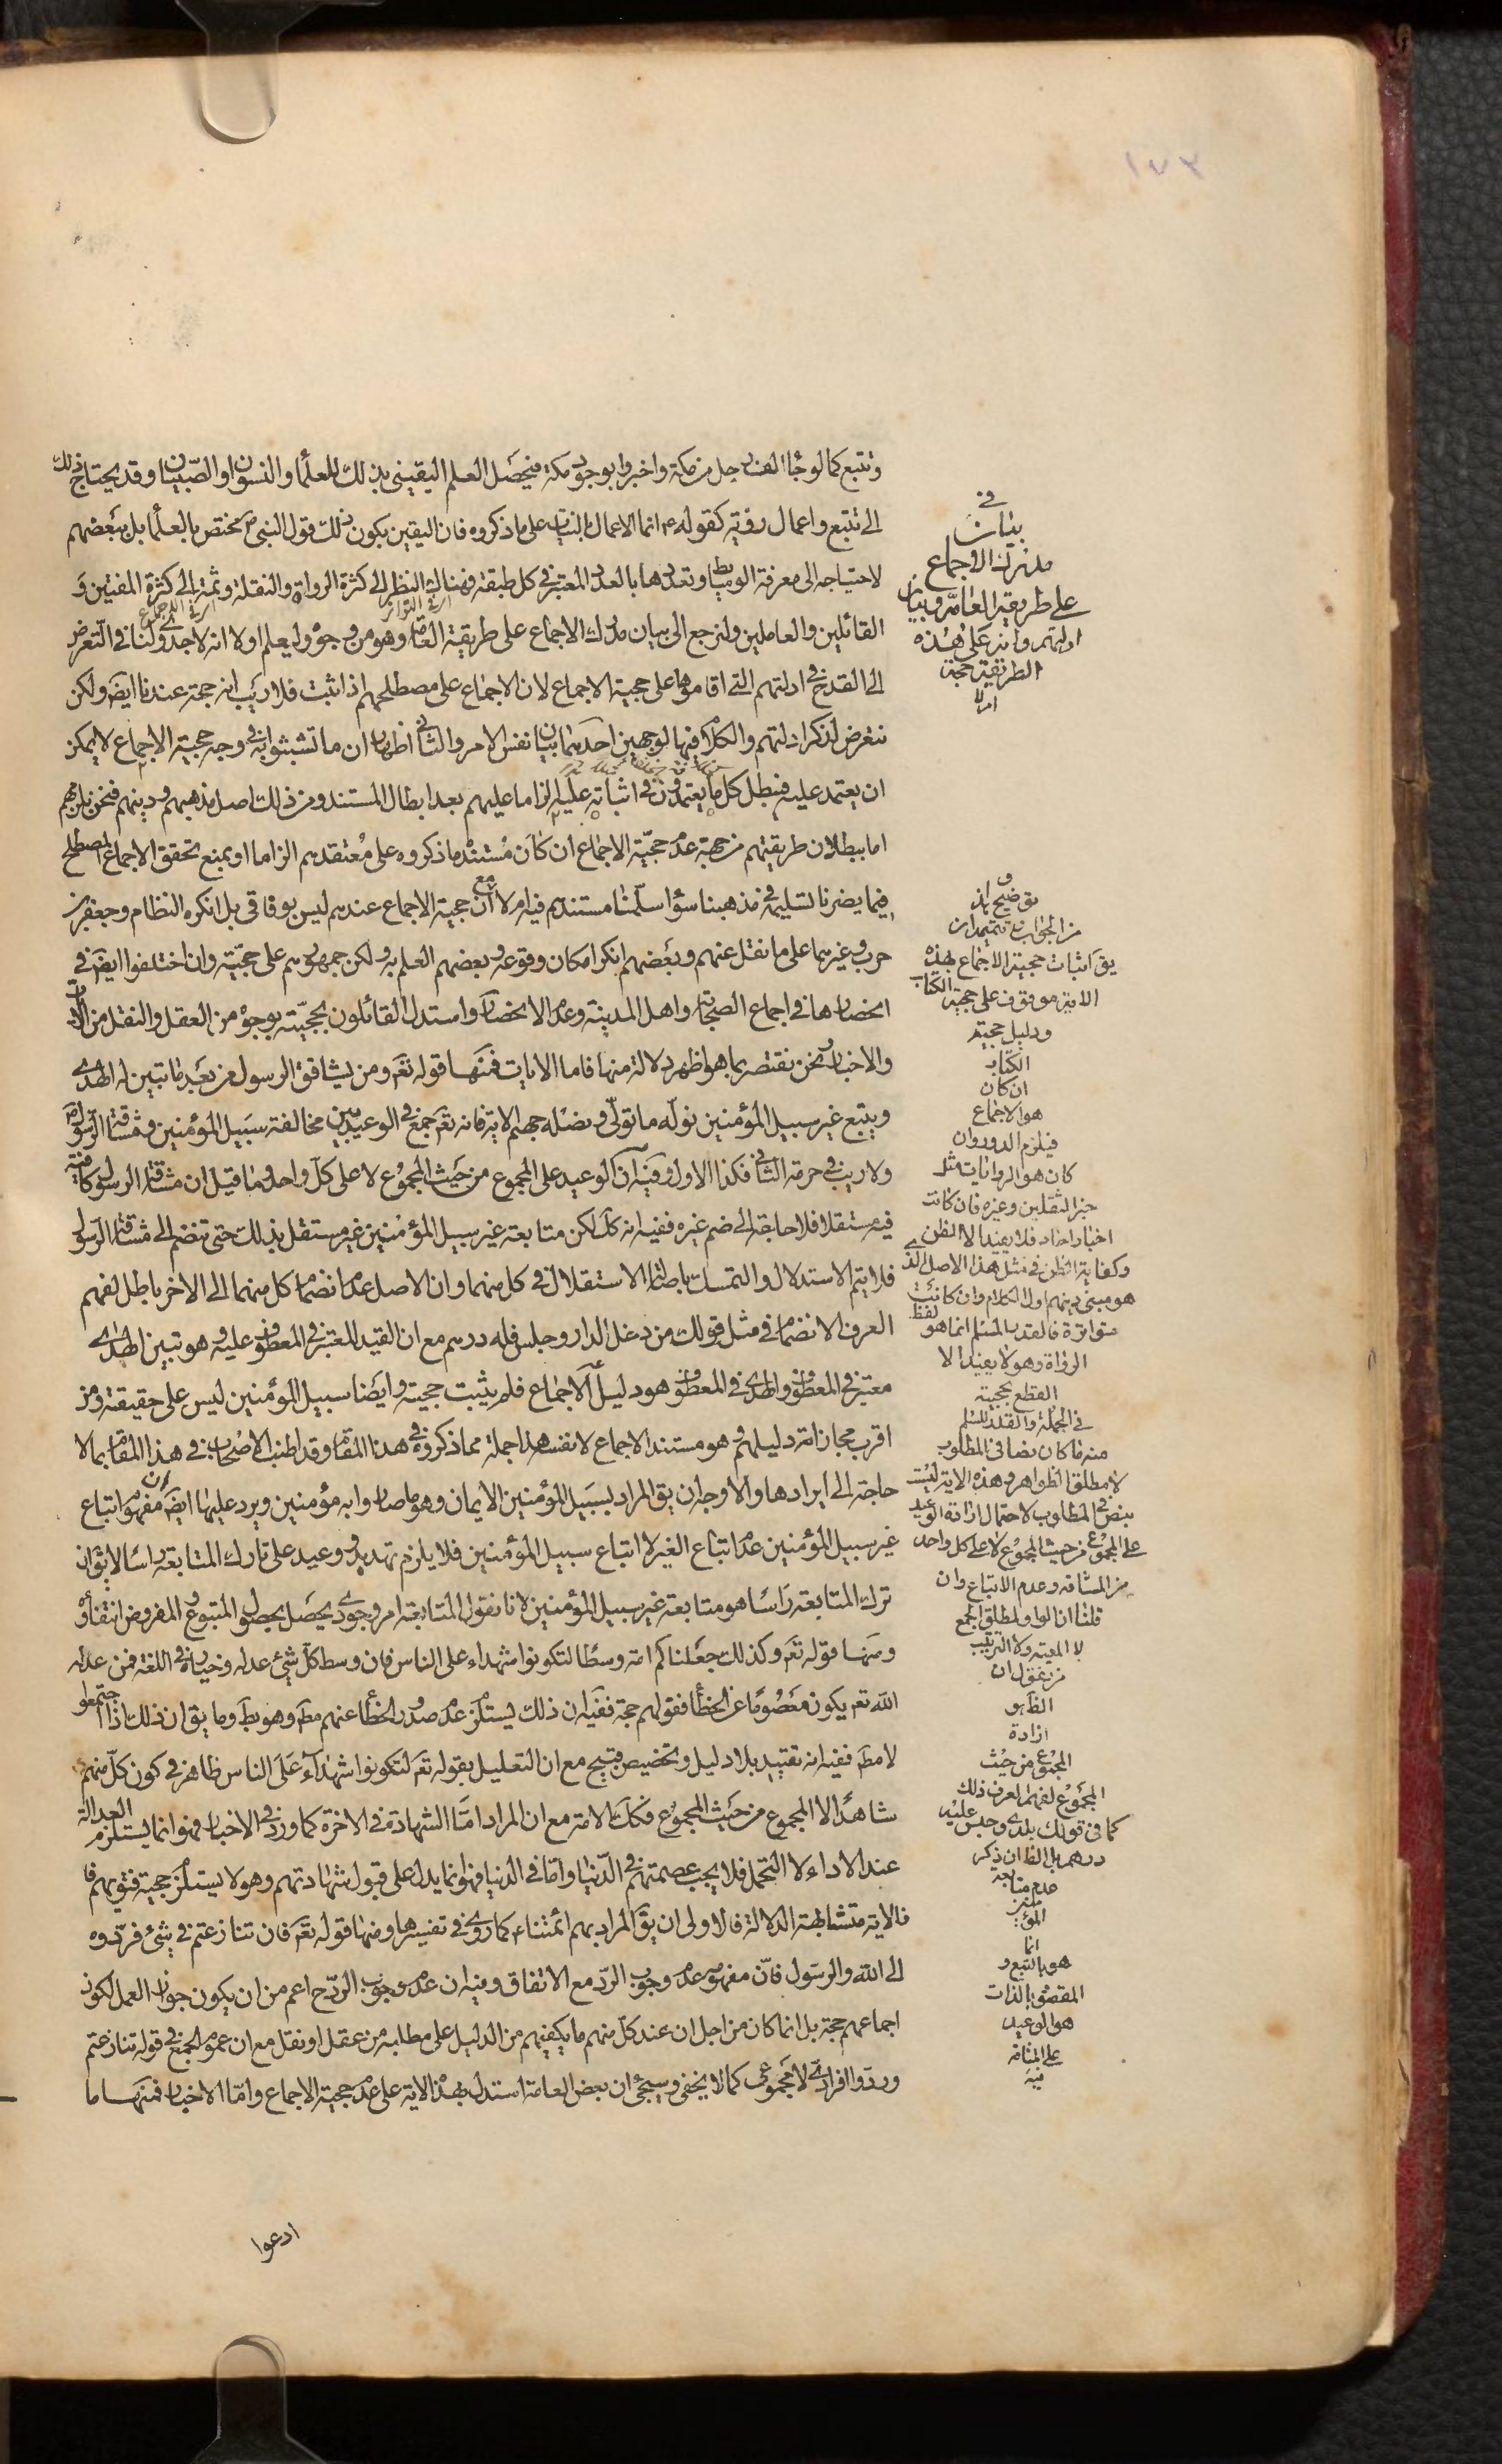 ١٧٣
وتتبع كما لو جاء الف رجل من مكة واخبروا بوجود مكة فيحصل العلم اليقيني بذلك للعلماء والنسوان او الصبيان وقد يحتاج ذلك
الى تتبع واعمال روية كقوله ع انما الاعمال بالنيات على ما ذكروه فان اليقين بكون ذلك قول النبي ص مختص بالعلماء بل ببعضهم
لاحتياجه الى معرفة الوسايط وتعددها بالعدد المعتبر في كل طبقة فهناك النظر الى كثرة الرواة والنقلة وثمة الى كثرة المفتين و
القائلين والعاملين ولنرجع الى بيان مدرك الاجماع على طريقة العامة وهو من وجوه وليعلم اولا انه لا جدوى لنا في التعرض
الى القدح في ادلتهم التي اقاموها على حجية الاجماع لان الاجماع على مصطلحهم اذا ثبت فلا ريب انه حجة عندنا ايضا ولكن
نتعرض لذكر ادلتهم والكلام فيها لوجهين احدهما بيان نفس الامر والثاني اظهار ان ما تشبثوا به في وجه حجية الاجماع لا يمكن
ان يعتمد عليه فنبطل كل ما يعتمدون في اثباته عليه الزاما عليهم بعد ابطال المستند ومن ذلك اصل مذهبهم ودينهم فنحن نلزمهم
اما ببطلان طريقتهم من جهة عدم حجية الاجماع ان كان مستند ما ذكروه على معتقدهم الزاما او بمنع تحقق الاجماع المصطلح
فيما يضرنا تسليمه في مذهبنا سواء سلمنا مستندهم فيه ام لا مع ان حجية الاجماع عندهم ليس بوفاقي بل انكره النظام وجعفر بن
حرب وغيرهما على ما نقل عنهم وبعضهم انكر امكان وقوعه وبعضهم العلم به ولكن جمهورهم على حجيته وان اختلفوا ايضا في
انحصارها في اجماع الصحابة واهل المدينة وعدم الانحصار واستدل القائلون بحجيته بوجوه من العقل والنقل من الايات
والاخبار ونحن نقتصر بما هو اظهر دلالة منها فاما الايات فمنها قوله تعم ومن يشاقق الرسول من بعد ما تبين له الهدى
ويتبع غير سبيل المؤمنين نوله ما تولى ونصله جهنم الاية فانه تعم جمع في الوعيد بين مخالفة سبيل المؤمنين ومشاقة الرسول ص
ولا ريب في حرمة الثاني فكذا الاول وفيه ان الوعيد على المجموع من حيث المجموع لا على كل واحد وما قيل ان مشاقة الرسول كافية
فيه مستقلا فلا حاجة الى ضم غيره ففيه انه كك لكن متابعة غير سبيل المؤمنين غير مستقل بذلك حتى تنضم الى مشاقة الرسول
فلا يتم الاستدلال والتمسك باصالة الاستقلال في كل منهما وان الاصل عدم انضمام كل منهما الى الاخر باطل لفهم
العرف الانضمام في مثل قولك من دخل الدار وجلس فله درهم مع ان القيد المعتبر في المعطوف عليه وهو تبين الهدى
معتبر في المعطوف والهدى في المعطوف هو دليل الاجماع فلم يثبت حجيته وايضا سبيل المؤمنين ليس على حقيقته ومن
اقرب مجازاته دليلهم وهو مستند الاجماع لا نفسه هذا جملة مما ذكروه في هذا المقام وقد اطنب الاصحاب في هذا المقام بما لا
حاجة الى ايرادها والاوجه ان يق المراد بسبيل المؤمنين الايمان وهو ما صاروا به مؤمنين ويرد عليها ايضا ان مفهوم اتباع
غير سبيل المؤمنين عدم اتباع الغير لا اتباع سبيل المؤمنين فلا يلزم تهديد ووعيد على تارك المتابعة راسا لا يق ان
ترك المتابعة راسا هو متابعة غير سبيل المؤمنين لانا نقول المتابعة امر وجودي يحصل بحصول المتبوع والمفروض انتفاؤه
ومنها قوله تعم وكذلك جعلناكم امة وسطا لتكونوا شهداء على الناس فان وسط كل شيء عدله وخياره في اللغة فمن عدله
الله تعم يكون معصوما عن الخطأ فقولهم حجة ففيه ان ذلك يستلزم عدم صدور الخطأ عنهم مط وهو بط وما يق ان ذلك اذا اجتمعوا
لا مط ففيه انه تقييد بلا دليل وتخصيص قبيح مع ان التعليل بقوله تعم لتكونوا شهداء على الناس ظاهر في كون كل منهم
شاهدا لا المجموع من حيث المجموع فكك الامة مع ان المراد اما الشهادة في الاخرة كما ورد في الاخبار فهو انما يستلزم العدالة
عند الاداء لا التحمل فلا يجب عصمتهم في الدنيا واما في الدنيا فهو انما يدل على قبول شهادتهم وهو لا يستلزم حجية فتويهم فا
فالاية متشابهة الدلالة فالاولى ان يق المراد بهم ائمتنا ع كما روي في تفسيرها ومنها قوله تعم فان تنازعتم في شيء فردوه
الى الله والرسول فان مفهومه عدم وجوب الرد مع الاتفاق وفيه ان عدم وجوب الرد ح اعم من ان يكون جواز العمل لكون
اجماعهم حجة بل انما كان من اجل ان عند كل منهم ما يكفيهم من الدليل على مطالبه من عقل او نقل مع ان عموم الجمع في قوله تنازعتم
وردوا افرادي لا مجموعي كما لا يخفى وسيجيء ان بعض العامة استدل بهذه الاية على عدم حجية الاجماع واما الاخبار فمنها ما
ادعوا
في
بيان
مدرك الاجماع
على طريقة العامة وبيان
ادلتهم وانه على هذه
الطريقة حجة
ام لا
وتوضيح هذا
من الجواب وتتميمه ان
يق اثبات حجية الاجماع بهذه
الاية موقوف على حجية الكتاب
ودليل حجية
الكتاب
ان كان
هو الاجماع
فيلزم الدور وان
كان هو الروايات مثل
خبر الثقلين وغيره فان كانت
اخبار احاد فلا يفيد الا الظن
وكفاية الظن في مثل هذا الاصل الذي
هو مبنى دينهم اول الكلام وان كانت
متواترة فالقدر المسلم انما هو لفظ
الرواة وهو لا يفيد الا
القطع بحجية
في الجملة والقدر المسلم
منه ما كان نصا في المطلوب
لا مطلق الظواهر وهذه الاية ليست
بنص في المطلوب لاحتمال ارادة الوعيد
على المجموع من حيث المجموع لا على كل واحد
من المشاقة وعدم الاتباع وان
قلنا ان الواو لمطلق الجمع
لا المعية ولا الترتيب
من نقول ان
الظاهر
ارادة
المجموع من حيث
المجموع لفهم العرف ذلك
كما في قولك بلدي وجلس عليه
درهم بل الظ ان ذكر
عدم متابعة
غير
المؤ
انما
هو بالتبع و
المقصود بالذات
هو الوعيد
على المشاقة
فيه